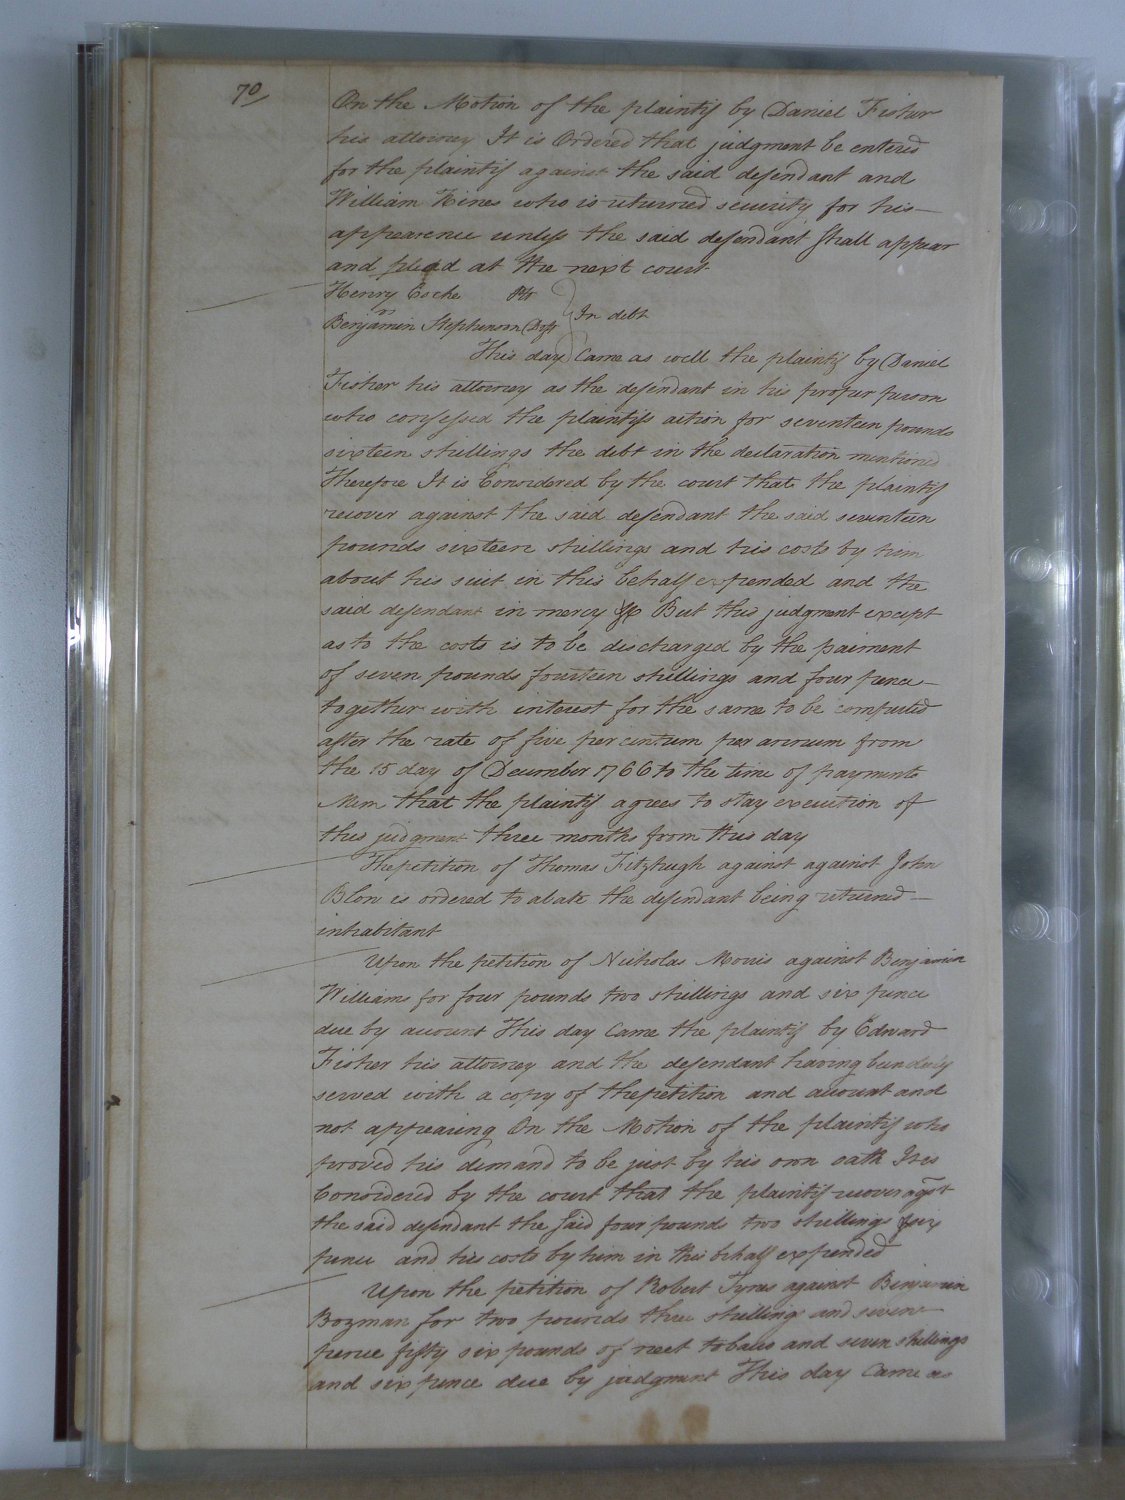 70
On the Motion of the plaintif by Daniel Fisher
his attorney It is Ordered that judgment be entered
for the plaintif against the said defendant and
William Hines who is returned security for his
appearence unless the said defendant shall appear
and plead at the next court
Henry Cocke Plt
vs In debt
Benjamin Stephenson Deft
This day Came as well the plaintif by Daniel
Fisher his attorney as the defendant in his proper person
who confessed the plaintifs action for seventeen pounds
sixteen shillings the debt in the declaration mentioned
Therefore It is Considered by the court that the plaintif
recover against the said defendant the said seventeen
pounds sixteen shillings and his costs by him
about his suit in this behalf expended and the
said defendant in mercy &c But this judgment except
as to the costs is to be discharged by the paiment
of seven pounds fourteen shillings and four pence
together with interest for the same to be computed
after the rate of five per centum per annum from
the 15 day of December 1766 to the time of payment
Mem that the plaintif agrees to stay execution of
this judgment three months from this day
The petition of Thomas Fitzhugh against against John
Blow is ordered to abate the defendant being returned
inhabitant
Upon the petition of Nicholas Morris against Benjamin
Williams for four pounds two shillings and six pence
due by account This day Came the plaintif by Edward
Fisher his attorney and the defendant having been duly
served with a copy of the petition and account and
not appearing On the Motion of the plaintif who
proved his demand to be just by his own oath It is
Considered by the court that the plaintif recover agst
the said defendant the said four pounds two shillings & six
pence and his costs by him in this behalf expended
Upon the petition of Robert Tyres against Benjamin
Bozman for two pounds three shillings and seven
pence fifty six pounds of neet tobaco and seven shillings
and six pence due by judgment This day Came as